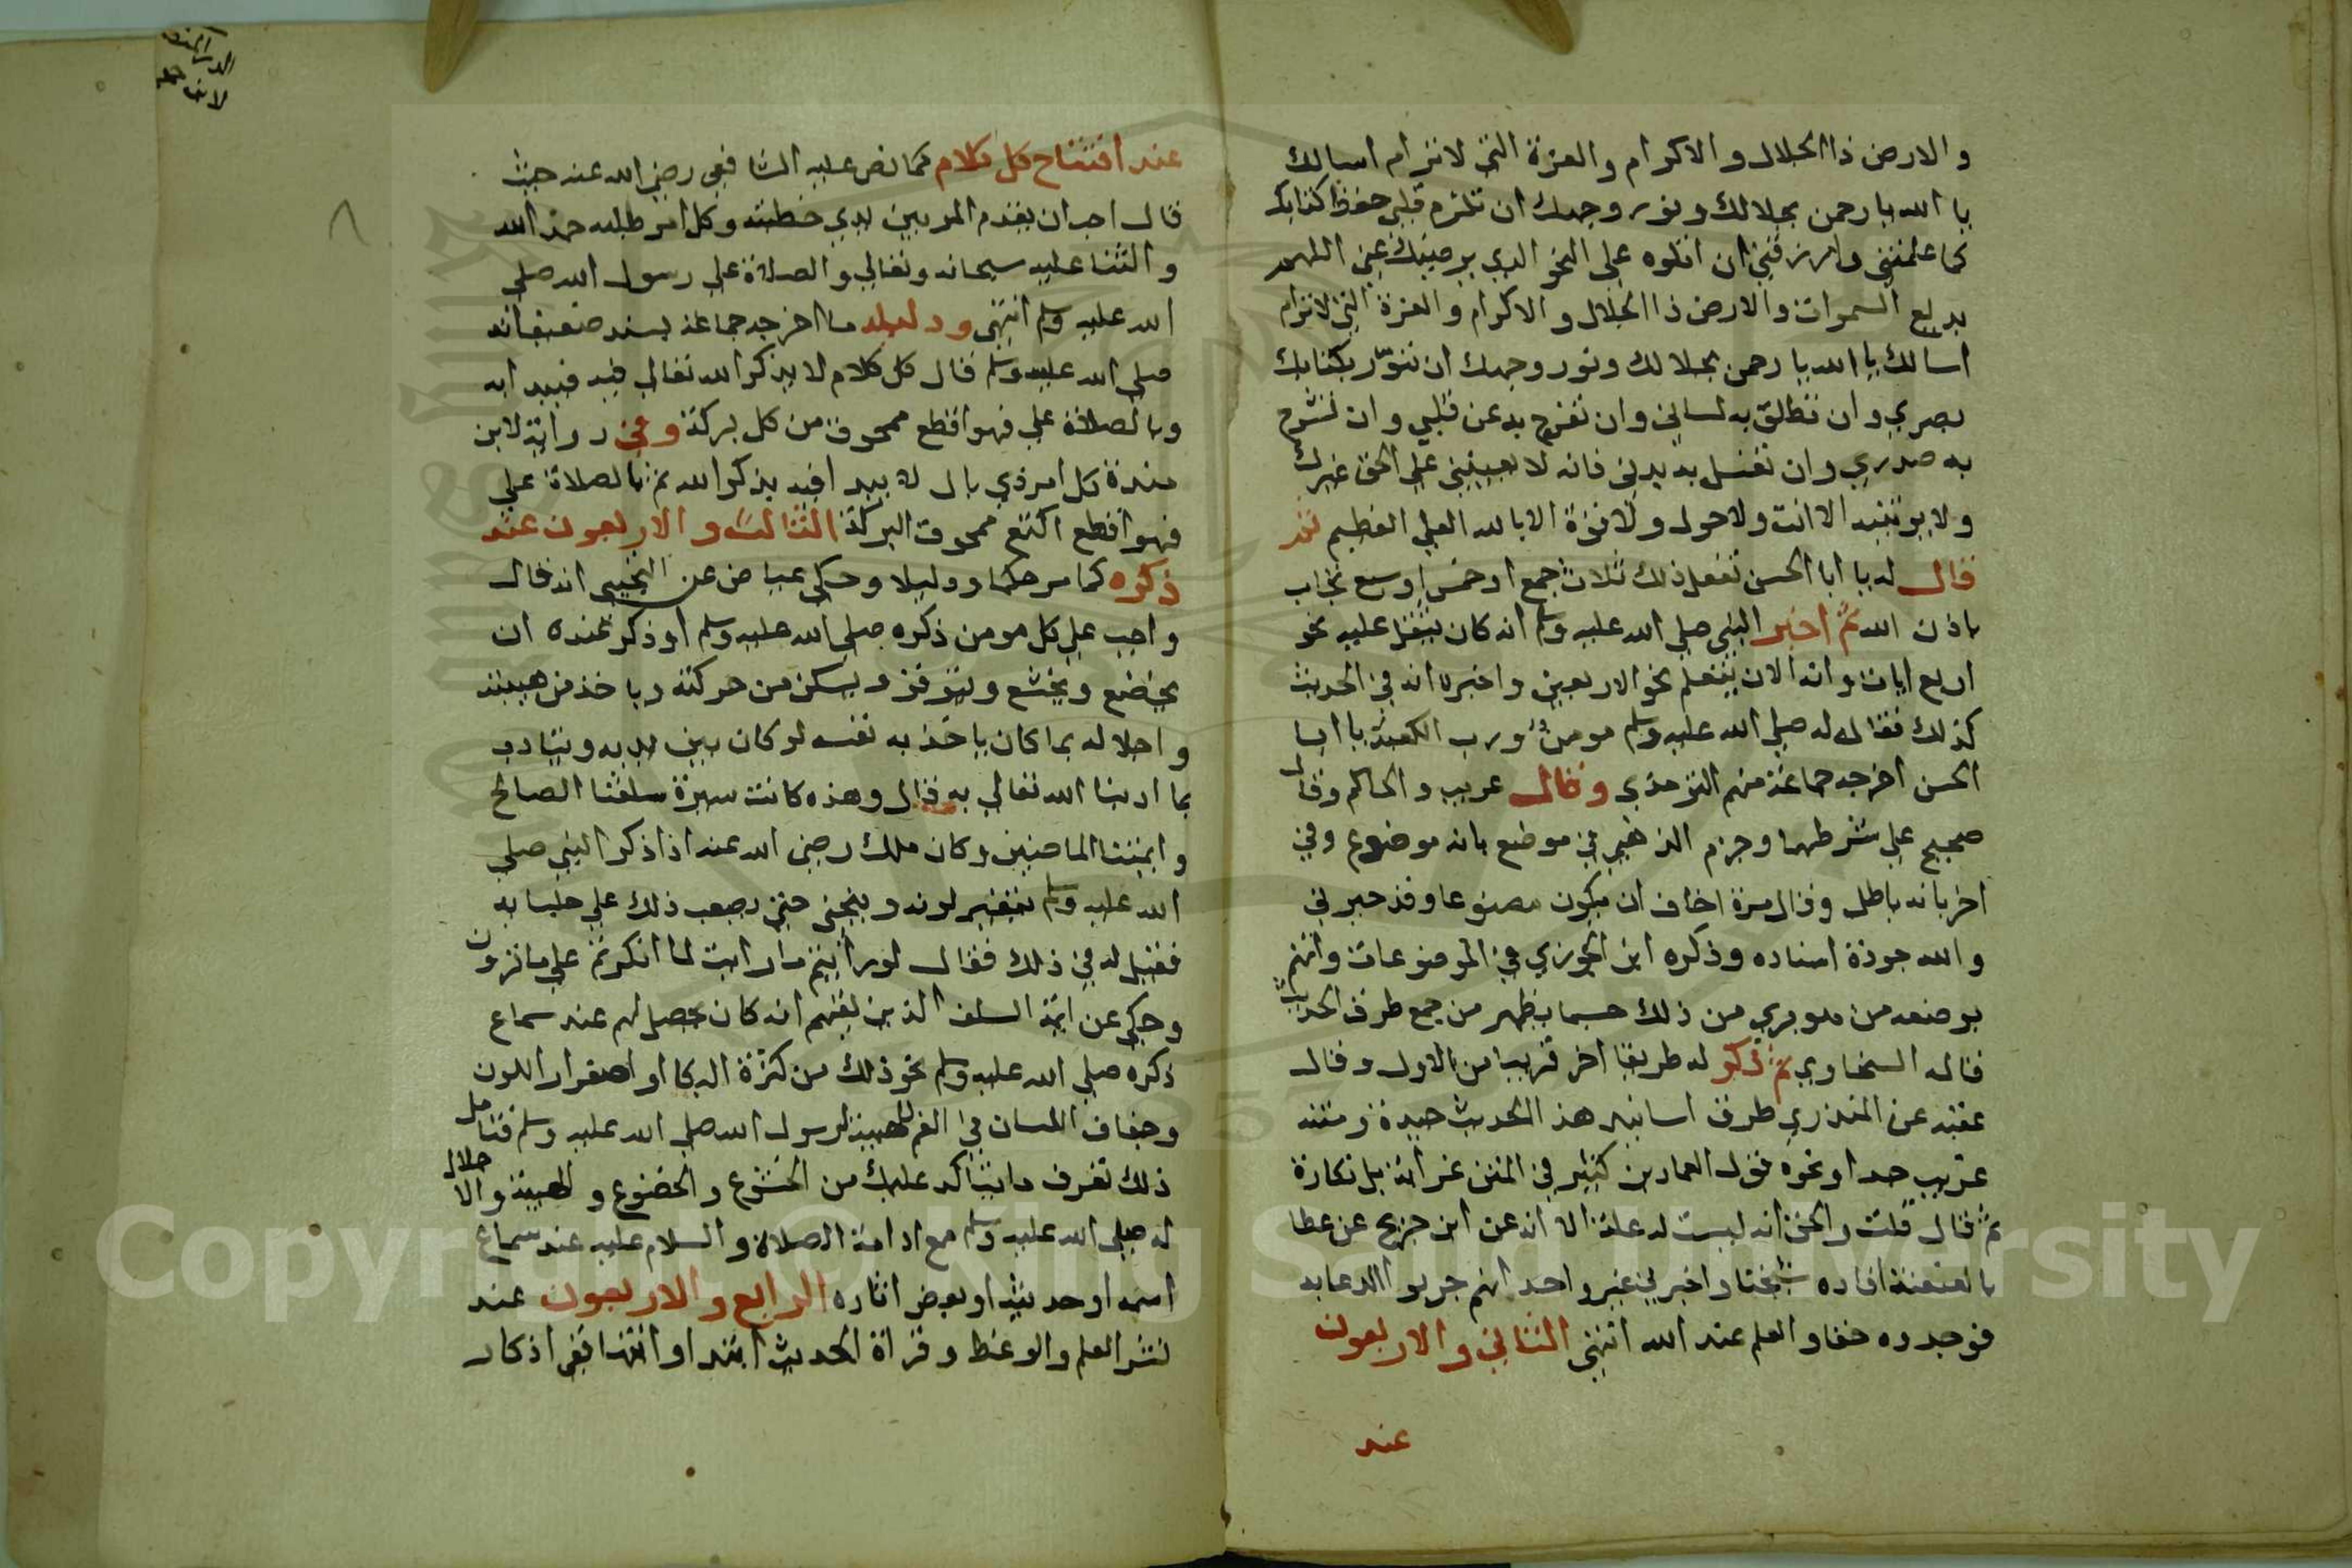 والارض ذا الجلال والاكرام والعزة التي لا ترام اسالك
يا الله يا رحمن بجلالك ونور وجهك ان تلزم قلبي حفظ كتابك
كما علمتني وارزقني ان اتلوه علي النحو الذي يرضيك عني اللهم
بديع السموات والارض ذا الجلال والاكرام والعزة التي لا ترام
اسالك يا الله يا رحمن بجلالك ونور وجهك ان تنوّر بكتابك
بصري وان تطلق به لساني وان تفرج به عن قلبي وان تشرح
به صدري وان تغسل به بدني فانه لا يعينني علي الحق غيرك
ولا يوتيه الا انت ولا حول ولا قوة الا بالله العلي العظيم ثم
قال له يا ابا الحسن تفعل ذلك ثلاث جمع او خمس او سبع تجاب
باذن الله ثم اخبر النبي صلي الله عليه وسلم انه كان يتعلم نحو
اربع ايات وانه الان يتعلم نحو الاربعين واخبره انه في الحديث
كذلك فقال له صلي الله عليه وسلم مومنٌ ورب الكعبة يا ابا
الحسن اخرجه جماعة منهم الترمذي وقال غريب والحاكم وقال
صحيح علي شرطهما وجزم الذهبي في موضع بانه موضوع وفي
اخر بانه باطل وقال مرة اخاف ان يكون مصنوعا وقد حيرني
والله جودة اسناده وذكره ابن الجوزي في الموضوعات واتهم
بوضعه من هو بري من ذلك حسبما يظهر من جمع طرق الحديث
قاله السخاوي ثم ذكر له طريقا اخر قريبا من الاول وقال
عقبه عن المنذري طرق اسانيد هذا الحديث جيدة ومتنه
غريب جدا ونحوه قول العماد بن كثير في المتن غرابة بل نكارة
ثم قال قلت والحق انه ليست له علة الا انه عن ابن جريج عن عطا
بالعنعنة افاده شيخنا واخبرني غير واحد انهم جربوا الدعا به
فوجدوه حقا والعلم عند الله انتهي الثاني والاربعون
عند
عند افتتاح كل كلام كما نص عليه الشافعي رضي الله عنه حيث
قال احب ان يقدم المر بين يدي خطبته وكل امر طلبه حمد الله
والثنا عليه سبحانه وتعالي والصلاة علي رسول الله صلي
الله عليه وسلم انتهي ودليله ما اخرجه جماعة بسند ضعيف انه
صلي الله عليه وسلم قال كل كلام لا يذكر الله تعالي فيه فيبدا به
وبالصلاة علي فهو اقطع ممحوق من كل بركة وفي رواية لابن
مندة كل امر ذي بال لا يبدا فيه بذكر الله ثم بالصلاة علي
فهو اقطع اكتع ممحوق البركة الثالث والاربعون عند
ذكره كما مر حكما ودليلا وحكي عياض عن التجيبي انه قال
واجب علي كل مومن ذكره صلي الله عليه وسلم او ذكر عنده ان
يخضع ويخشع ويتوقر ويسكن من حركته وياخذ من هيبته
واجلاله بما كان ياخذ به نفسه لو كان بين يديه ويتادب
بما ادبنا الله تعالي به قال وهذه كانت سيرة سلفنا الصالح
وايمتنا الماضين وكان ملك رضي الله عنه اذا ذكر النبي صلي
الله عليه وسلم يتغير لونه وينحني حتي يصعب ذلك علي جلسايه
فقيل له في ذلك فقال لو رايتم ما رايت لما انكرتم علي ما ترون
وحكي عن ايمة السلف الذين لقيهم انه كان يحصل لهم عند سماع
ذكره صلي الله عليه وسلم نحو ذلك من كثرة البكا او اصفرار اللون
وجفاف اللسان في الفم للهيبة لرسول الله صلي الله عليه وسلم فتامل
ذلك تعرف ما يتاكد عليك من الخشوع والخضوع والهيبة والاجلال
له صلي الله عليه وسلم مع ادامة الصلاة والسلام عليه عند سماع
اسمه او حديثه او بعض اثاره الرابع والاربعون عند
نشر العلم والوعظ وقراة الحديث ابتدا وانتها ففي اذكار
٨
Copyright © King Saud University